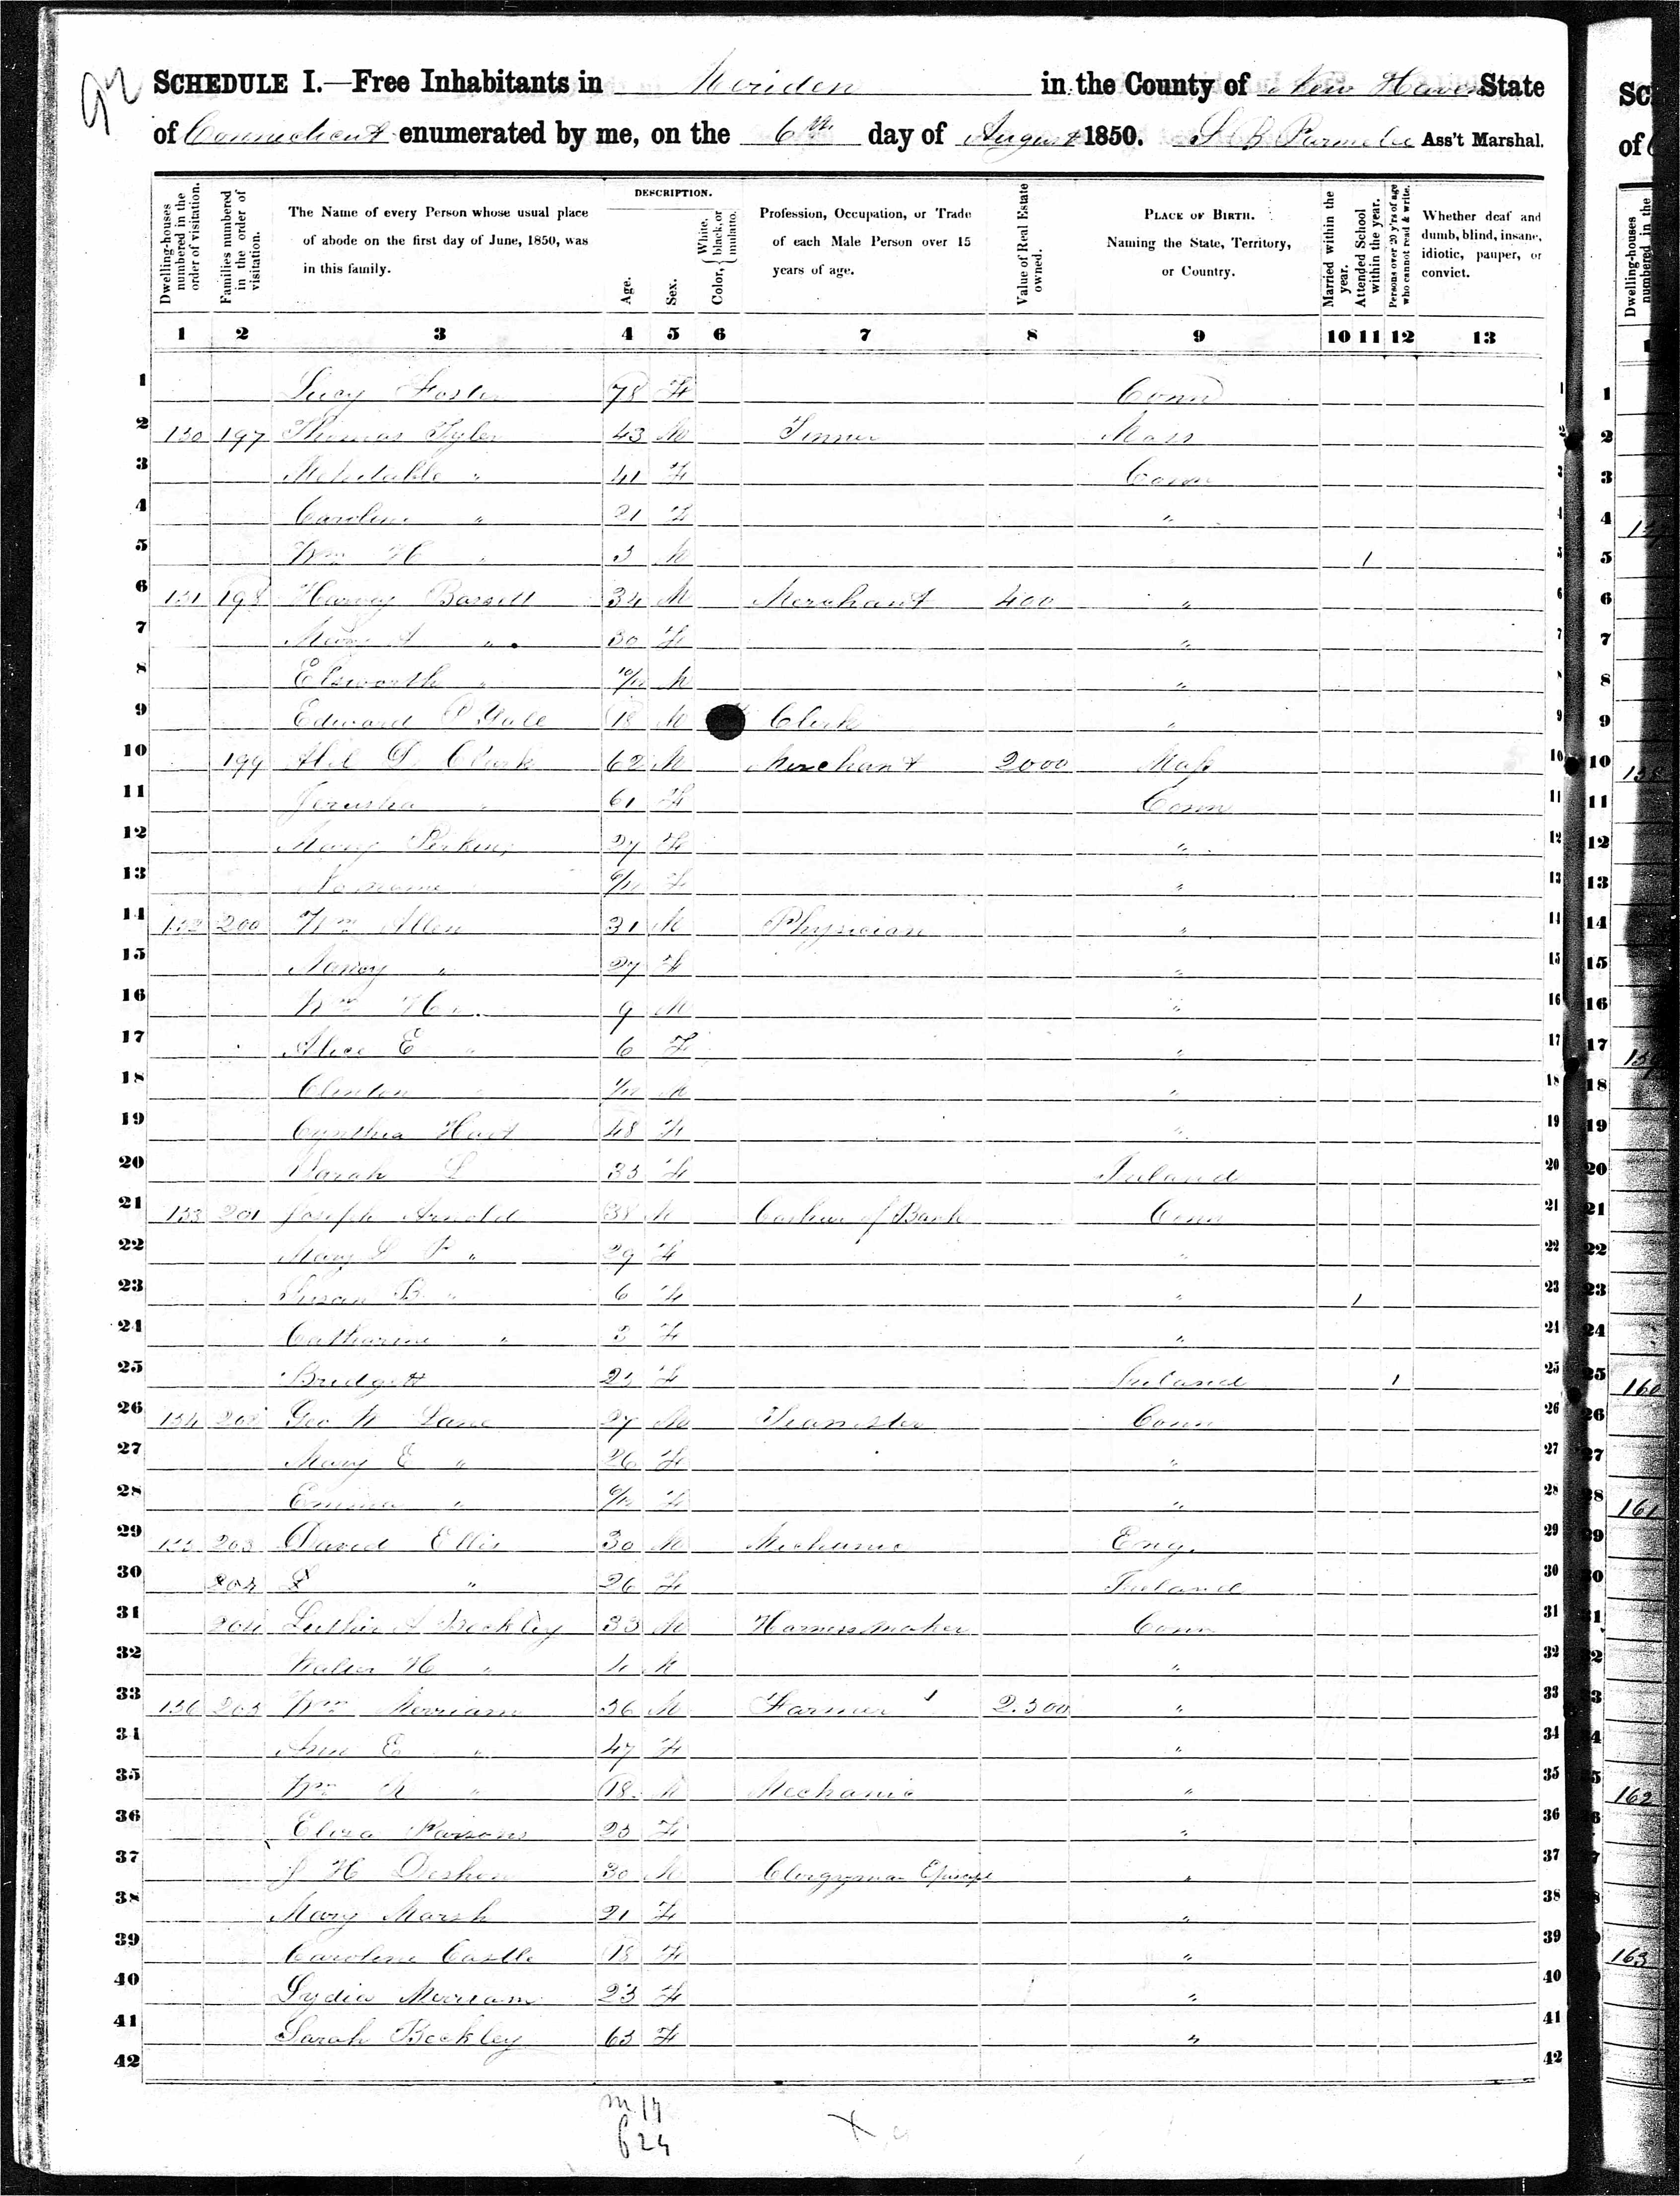 92
SCHEDULE I.—Free Inhabitants in Meriden in the County of New Haven State
of Connecticut enumerated by me, on the 6th day of August 1850. S B Parmelee Ass't Marshal.
Dwelling-houses numbered in the order of visitation.
Families numbered in the order of visitation.
The Name of every Person whose usual place of abode on the first day of June, 1850, was in this family.
DESCRIPTION.
Age.
Sex.
Color, White, black, or mulatto.
Profession, Occupation, or Trade of each Male Person over 15 years of age.
Value of Real Estate owned.
PLACE OF BIRTH. Naming the State, Territory, or Country.
Married within the year.
Attended School within the year.
Persons over 20 y'rs of age who cannot read & write.
Whether deaf and dumb, blind, insane, idiotic, pauper, or convict.
1 2 3 4 5 6 7 8 9 10 11 12 13
1 Lucy Foster 78 F Conn 1
2 150 197 Thomas Tyler 43 M Tinner Mass 2
3 Mehitable " 41 F Conn 3
4 Caroline " 21 F " 4
5 Wm H " 5 M " 1 5
6 151 198 Harvey Bassett 34 M Merchant 400 " 6
7 Mary A " 30 F " 7
8 Elsworth " 10/12 M " 8
9 Edward Gale 18 M Clerk " 9
10 199 Abel D Clark 62 M Merchant 2000 Mass 10
11 Jerusha " 61 F Conn 11
12 Mary Perkins 27 F " 12
13 6/12 F " 13
14 152 200 Wm Allen 31 M Physician " 14
15 Nancy " 27 F " 15
16 Wm H " 9 M " 16
17 Alice E " 6 F " 17
18 Clinton " 1/12 M " 18
19 Cynthia Hart 48 F " 19
20 Sarah L 35 F Ireland 20
21 153 201 Joseph Arnold 38 M Cashier of Bank Conn 21
22 Mary L P " 29 F " 22
23 Susan B " 6 F " 1 23
24 Catharine " 3 F " 24
25 Bridgett 25 F Ireland 1 25
26 154 202 Geo W Lane 27 M Teamster Conn 26
27 Mary E " 26 F " 27
28 Emma " 6/12 F " 28
29 155 203 David Ellis 30 M Mechanic Eng. 29
30 204 " 26 F Ireland 30
31 204 Luther A Beckley 33 M Harness maker Conn 31
32 Walter H " 4 M " 32
33 156 205 Wm Merriam 56 M Farmer 1 2.500 " 33
34 Ann E " 47 F " 34
35 Wm " 18 M Mechanic " 35
36 Eliza Parsons 25 F " 36
37 J H Deshon 30 M Clergyman Episcopl " 37
38 Mary Marsh 21 F " 38
39 Caroline Castle 18 F " 39
40 Lydia Merriam 23 F " 40
41 Sarah Beckley 63 F " 41
42 42
m 17
f 24